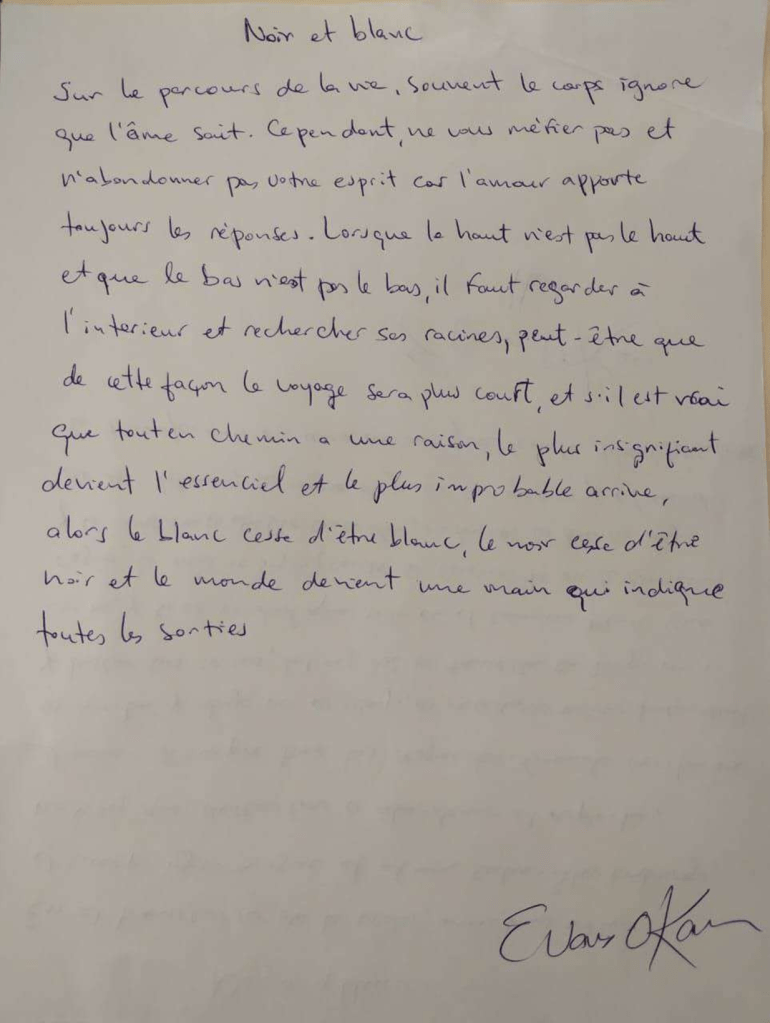 Noir et blanc
Sur le parcours de la vie, souvent le corps ignore
que l'âme sait. Cependant, ne vous méfier pas et
n'abandonner pas votre esprit car l'amour apporte
toujours les réponses. Lorsque le haut n'est pas le haut
et que le bas n'est pas le bas, il faut regarder à
l'interieur et rechercher ses racines, peut-être que
de cette façon le voyage sera plus court, et s'il est vrai
que tout en chemin a une raison, le plus insignifiant
devient l'essenciel et le plus improbable arrive,
alors le blanc cesse d'être blanc, le noir cesse d'être
noir et le monde devient une main qui indique
toutes les sorties
Evans Okan